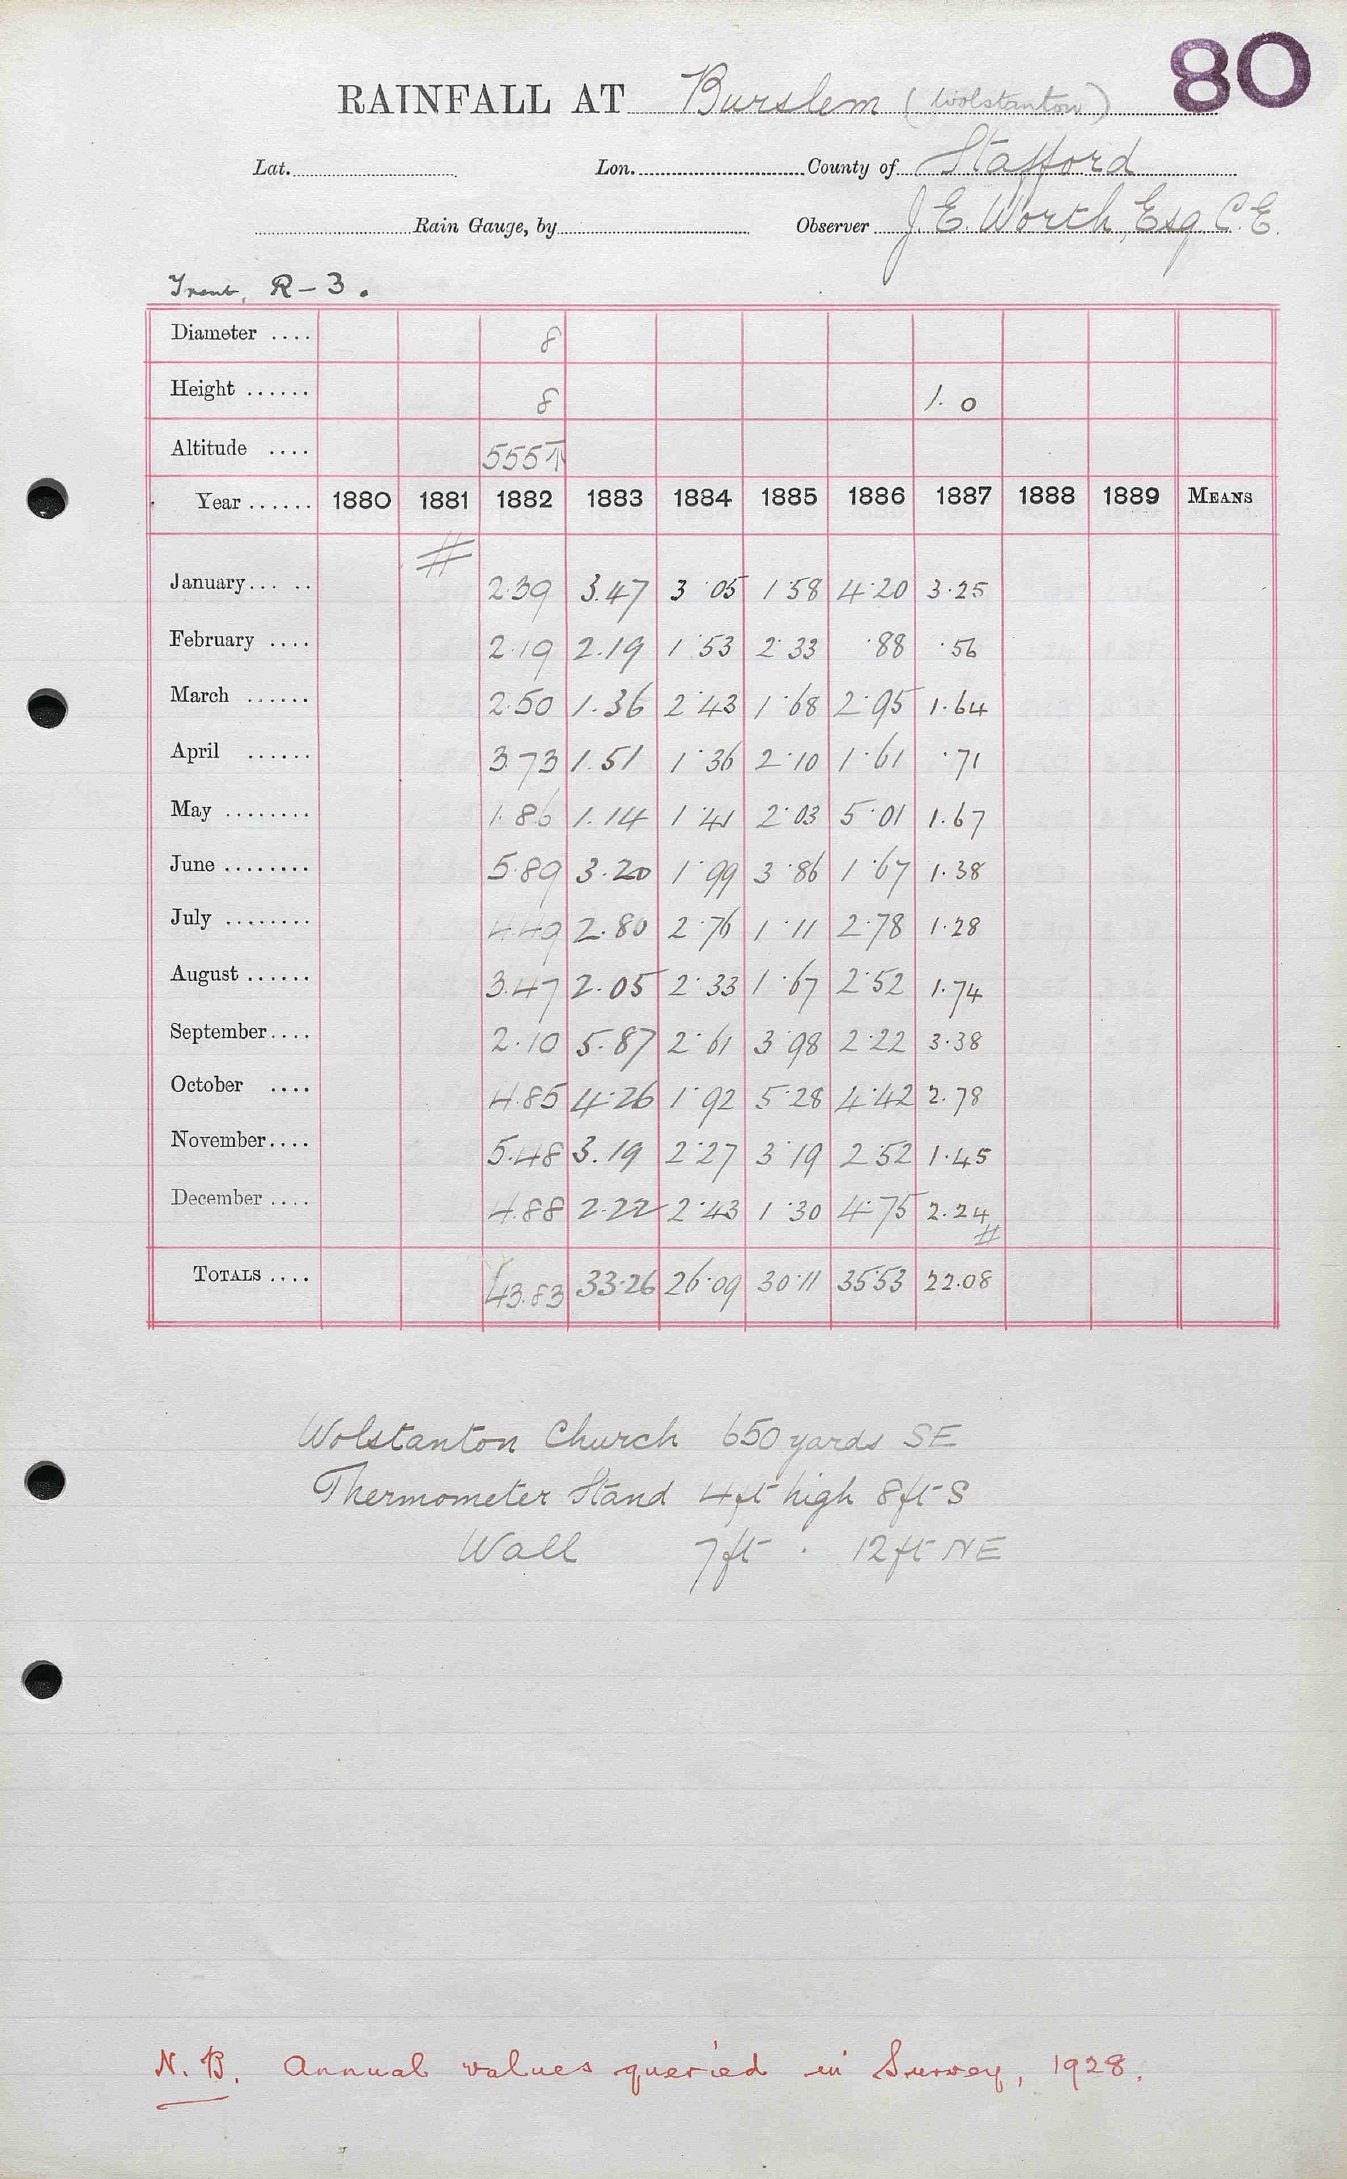 80
RAINFALL AT Burslem (Wolstanton)
Lat. Lon. County of Stafford
Rain Gauge, by Observer J. E. Worth, Esq. C. E.
Trent, R - 3.
Diameter .... 8
Height ...... 8 1. 0
Altitude .... 555 T
Year ...... 1880 1881 1882 1883 1884 1885 1886 1887 1888 1889 MEANS
January... .. 2.39 3.47 3.05 1.58 4.20 3.25
February .... 2.19 2.19 1.53 2.33 .88 .56
March ...... 2.50 1.36 2.43 1.68 2.95 1.64
April ...... 3.73 1.51 1.36 2.10 1.61 .71
May ........ 1.86 1.14 1.41 2.03 5.01 1.67
June ........ 5.89 3.20 1.99 3.86 1.67 1.38
July ........ 4.49 2.80 2.76 1.11 2.78 1.28
August ...... 3.47 2.05 2.33 1.67 2.52 1.74
September.... 2.10 5.87 2.61 3.98 2.22 3.38
October .... 4.85 4.26 1.92 5.28 4.42 2.78
November.... 5.48 3.19 2.27 3.19 2.52 1.45
December .... 4.88 2.22 2.43 1.30 4.75 2.24
TOTALS .... 43.83 33.26 26.09 30.11 35.53 22.08
Wolstanton Church 650 yards SE
Thermometer Stand 4ft high 8ft S
Wall 7ft . 12ft NE
N. B. Annual values queried in Survey, 1928.